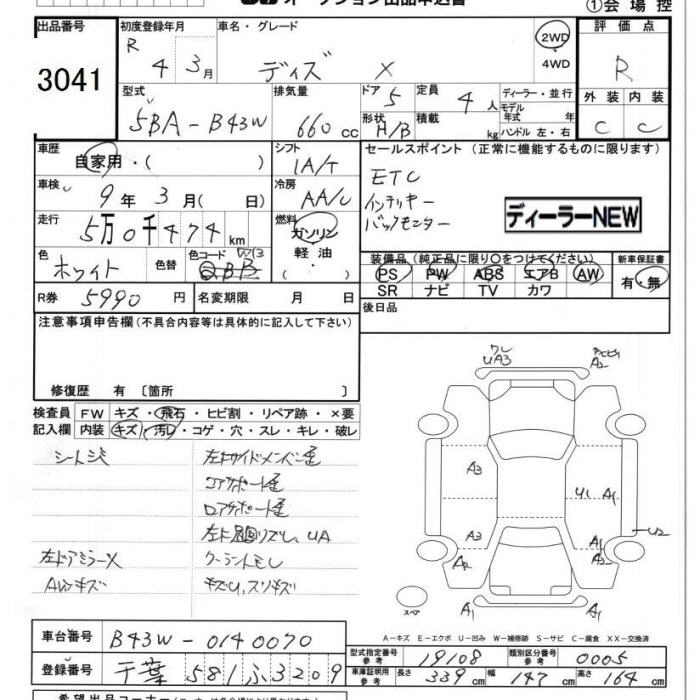 オークション出品申込書
①会場控
出品番号
3041
初度登録年月
R 4 3月
車名・グレード
デイズ X
2WD
4WD
評価点
R
外装 内装
C C
型式
5BA-B43W
排気量
660cc
ドア 5
形状 H/B
定員 4人
積載 kg
ディーラー・並行
モデル
年式 年
ハンドル 左・右
車歴
自家用・( )
シフト
IA/T
セールスポイント (正常に機能するものに限ります)
ETC
インテリキー
バックモニター
ディーラーNEW
車検
9年3月( 日)
冷房
AA/C
走行
5万0千474km
燃料
ガソリン
軽油
( ・ )
色
ホワイト
色替
色コード
W13
QBB
装備品 (純正品に限り○をつけてください)
PS PW ABS エアB AW
SR ナビ TV カワ
新車保証書
有・無
R券 5990円
名変期限 月 日
後日品
注意事項申告欄 (不具合内容等は具体的に記入して下さい)
修復歴 有〔箇所 〕
検査員 FW キズ・飛石・ヒビ割・リペア跡・×要
記入欄 内装 キズ・汚レ・コゲ・穴・スレ・キレ・破レ
シート汚
左ドアミラーX
AWキズ
UA3
A2
A3
U1
A1
A3
A1
A2
A1
U2
A1
A1
スペア
A-キズ E-エクボ U-凹み W-補修跡 S-サビ C-腐食 XX-交換済
車台番号 B43W-0140070
登録番号 千葉 581 ふ 3209
型式指定番号
参考
19108
類別区分番号
参考
0005
車庫証明用
参考
長さ 339cm 幅 147cm 高さ 164cm